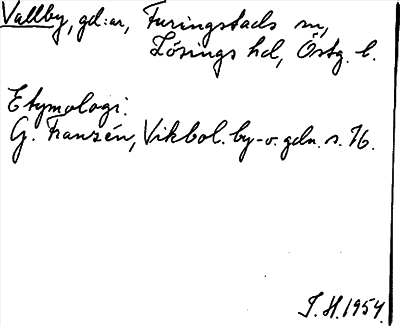 Vallby, gd:ar, Furingstads sn,
Lösings hd, Östg. l.
Etymologi.
G. Franzén, Vikbol. by- o. gdn. s. 76.
J. H. 1954.